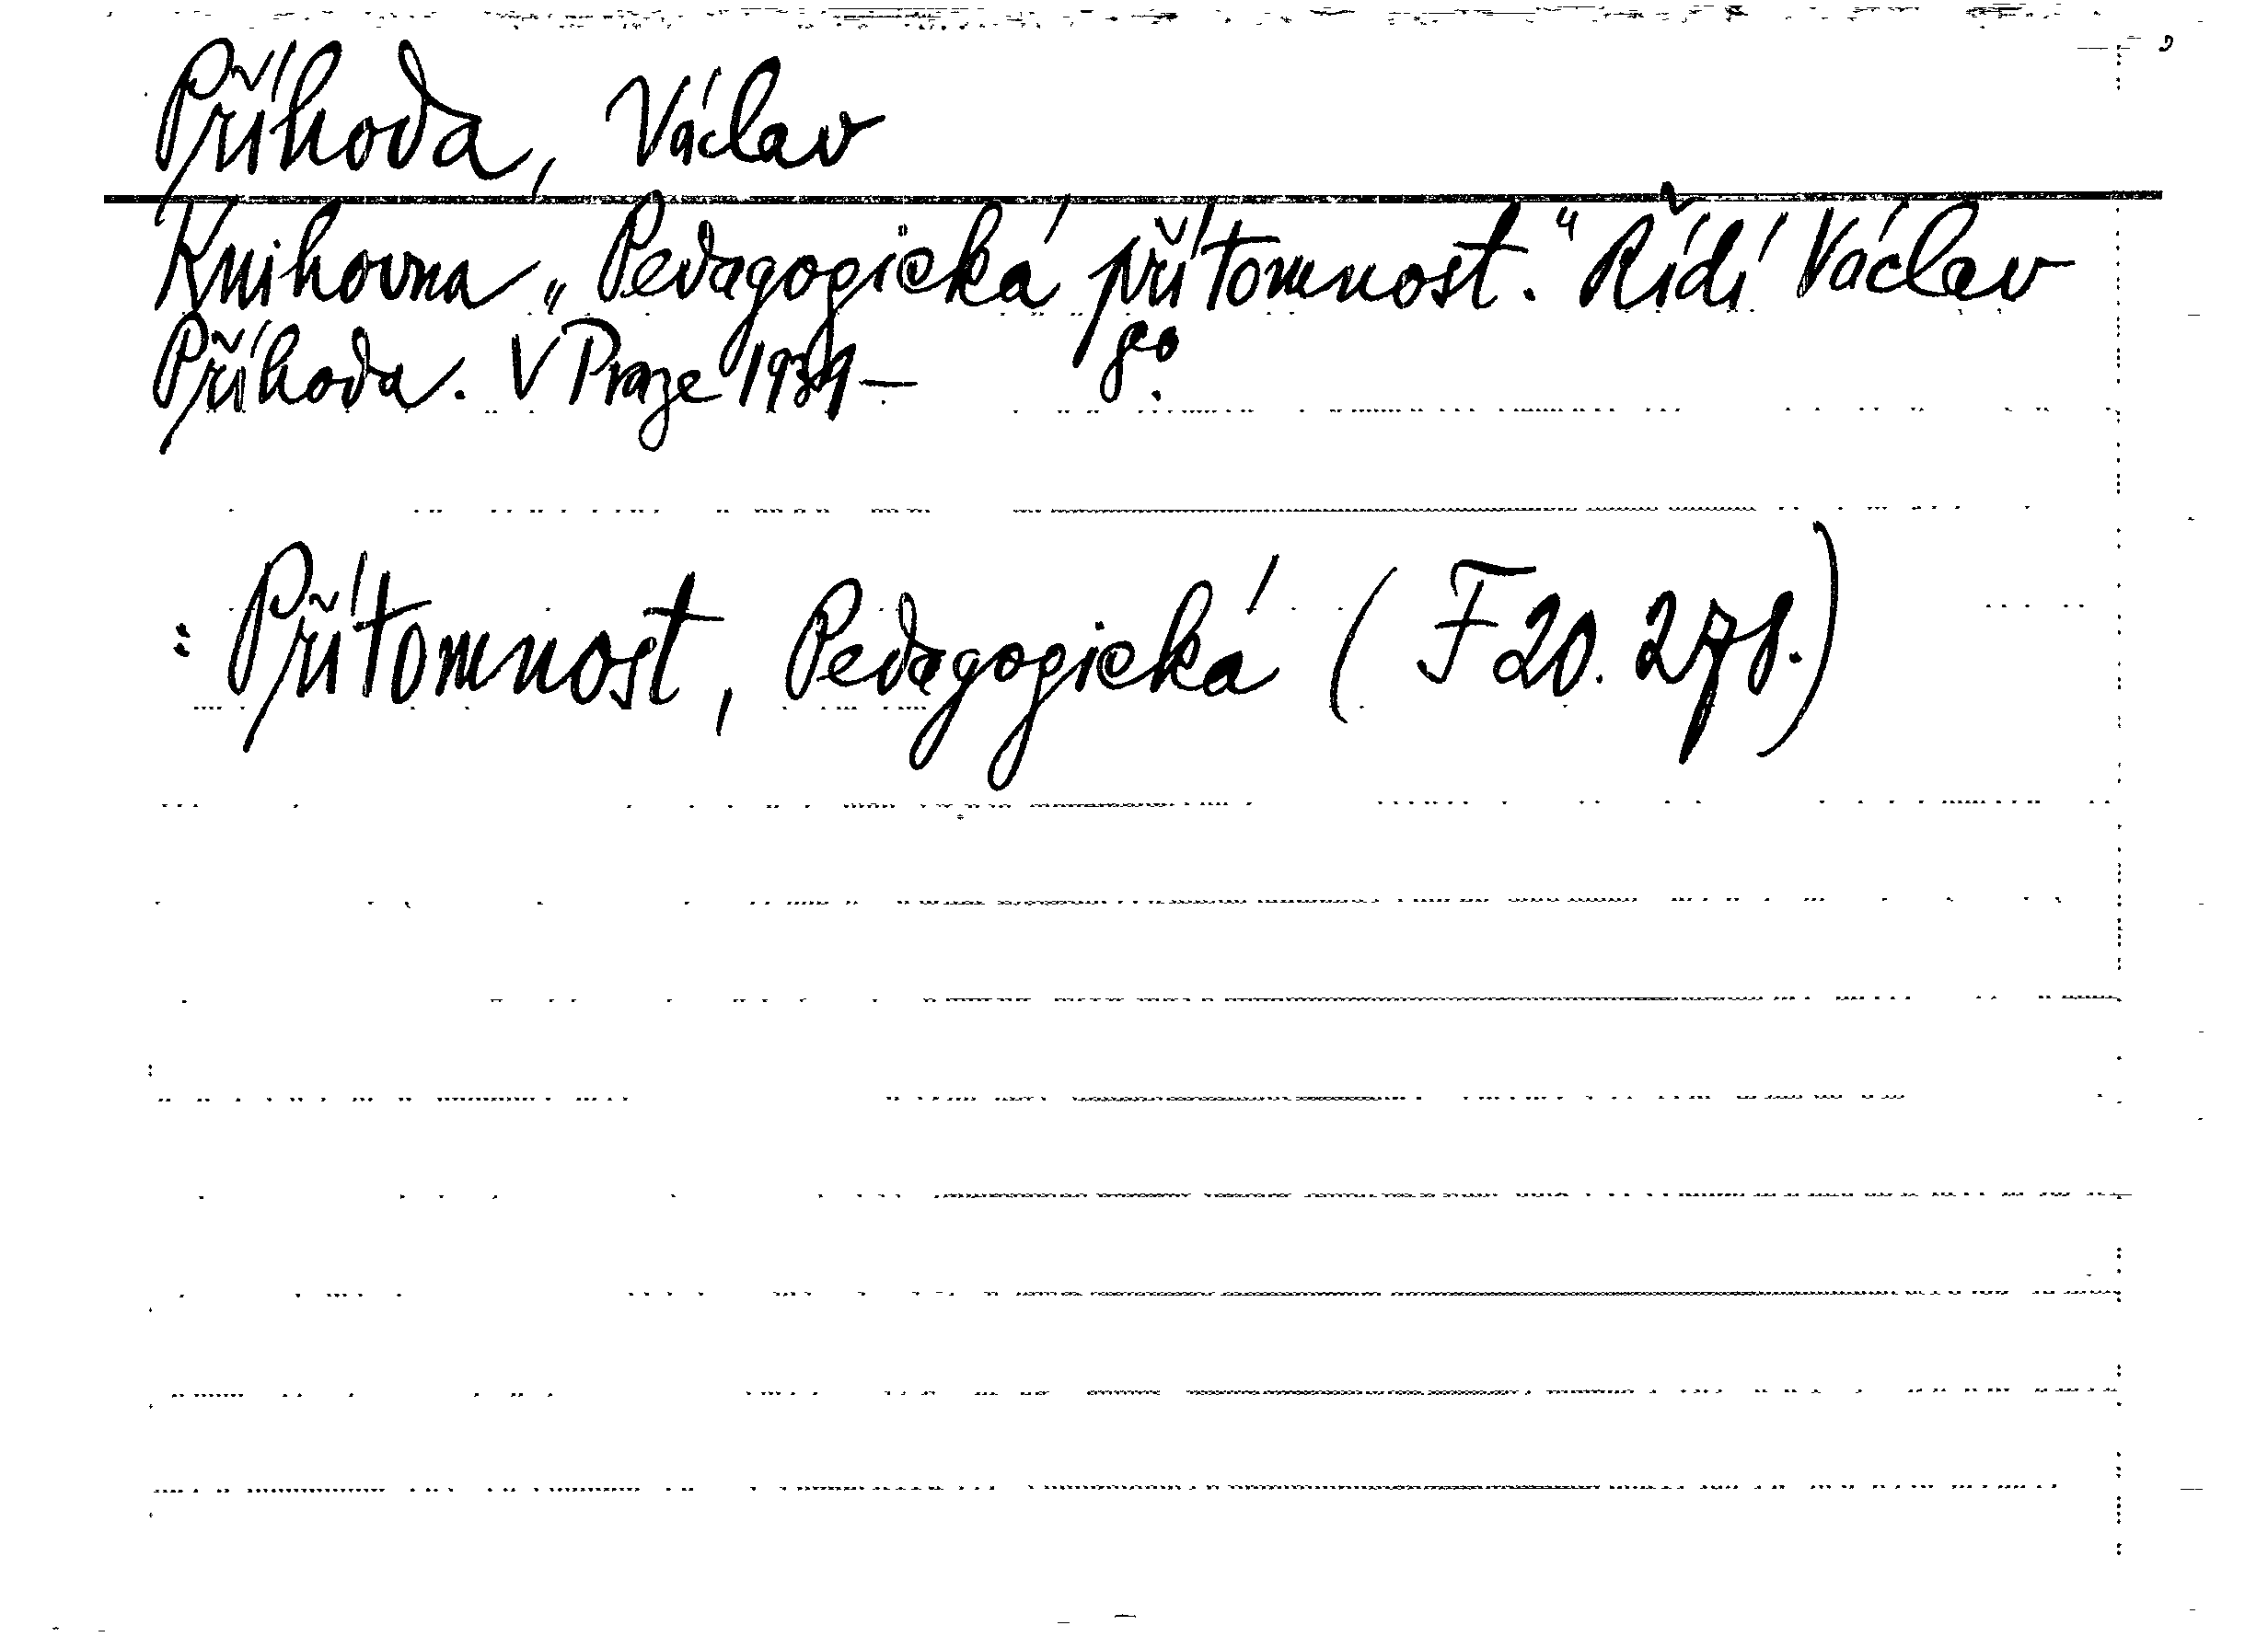 Příhoda, Václav
Knihovna „Pedagogická přítomnost.“ Řídí Václav
Příhoda. V Praze 1939– 8°.
: Přítomnost, Pedagogická (F 20.278.)